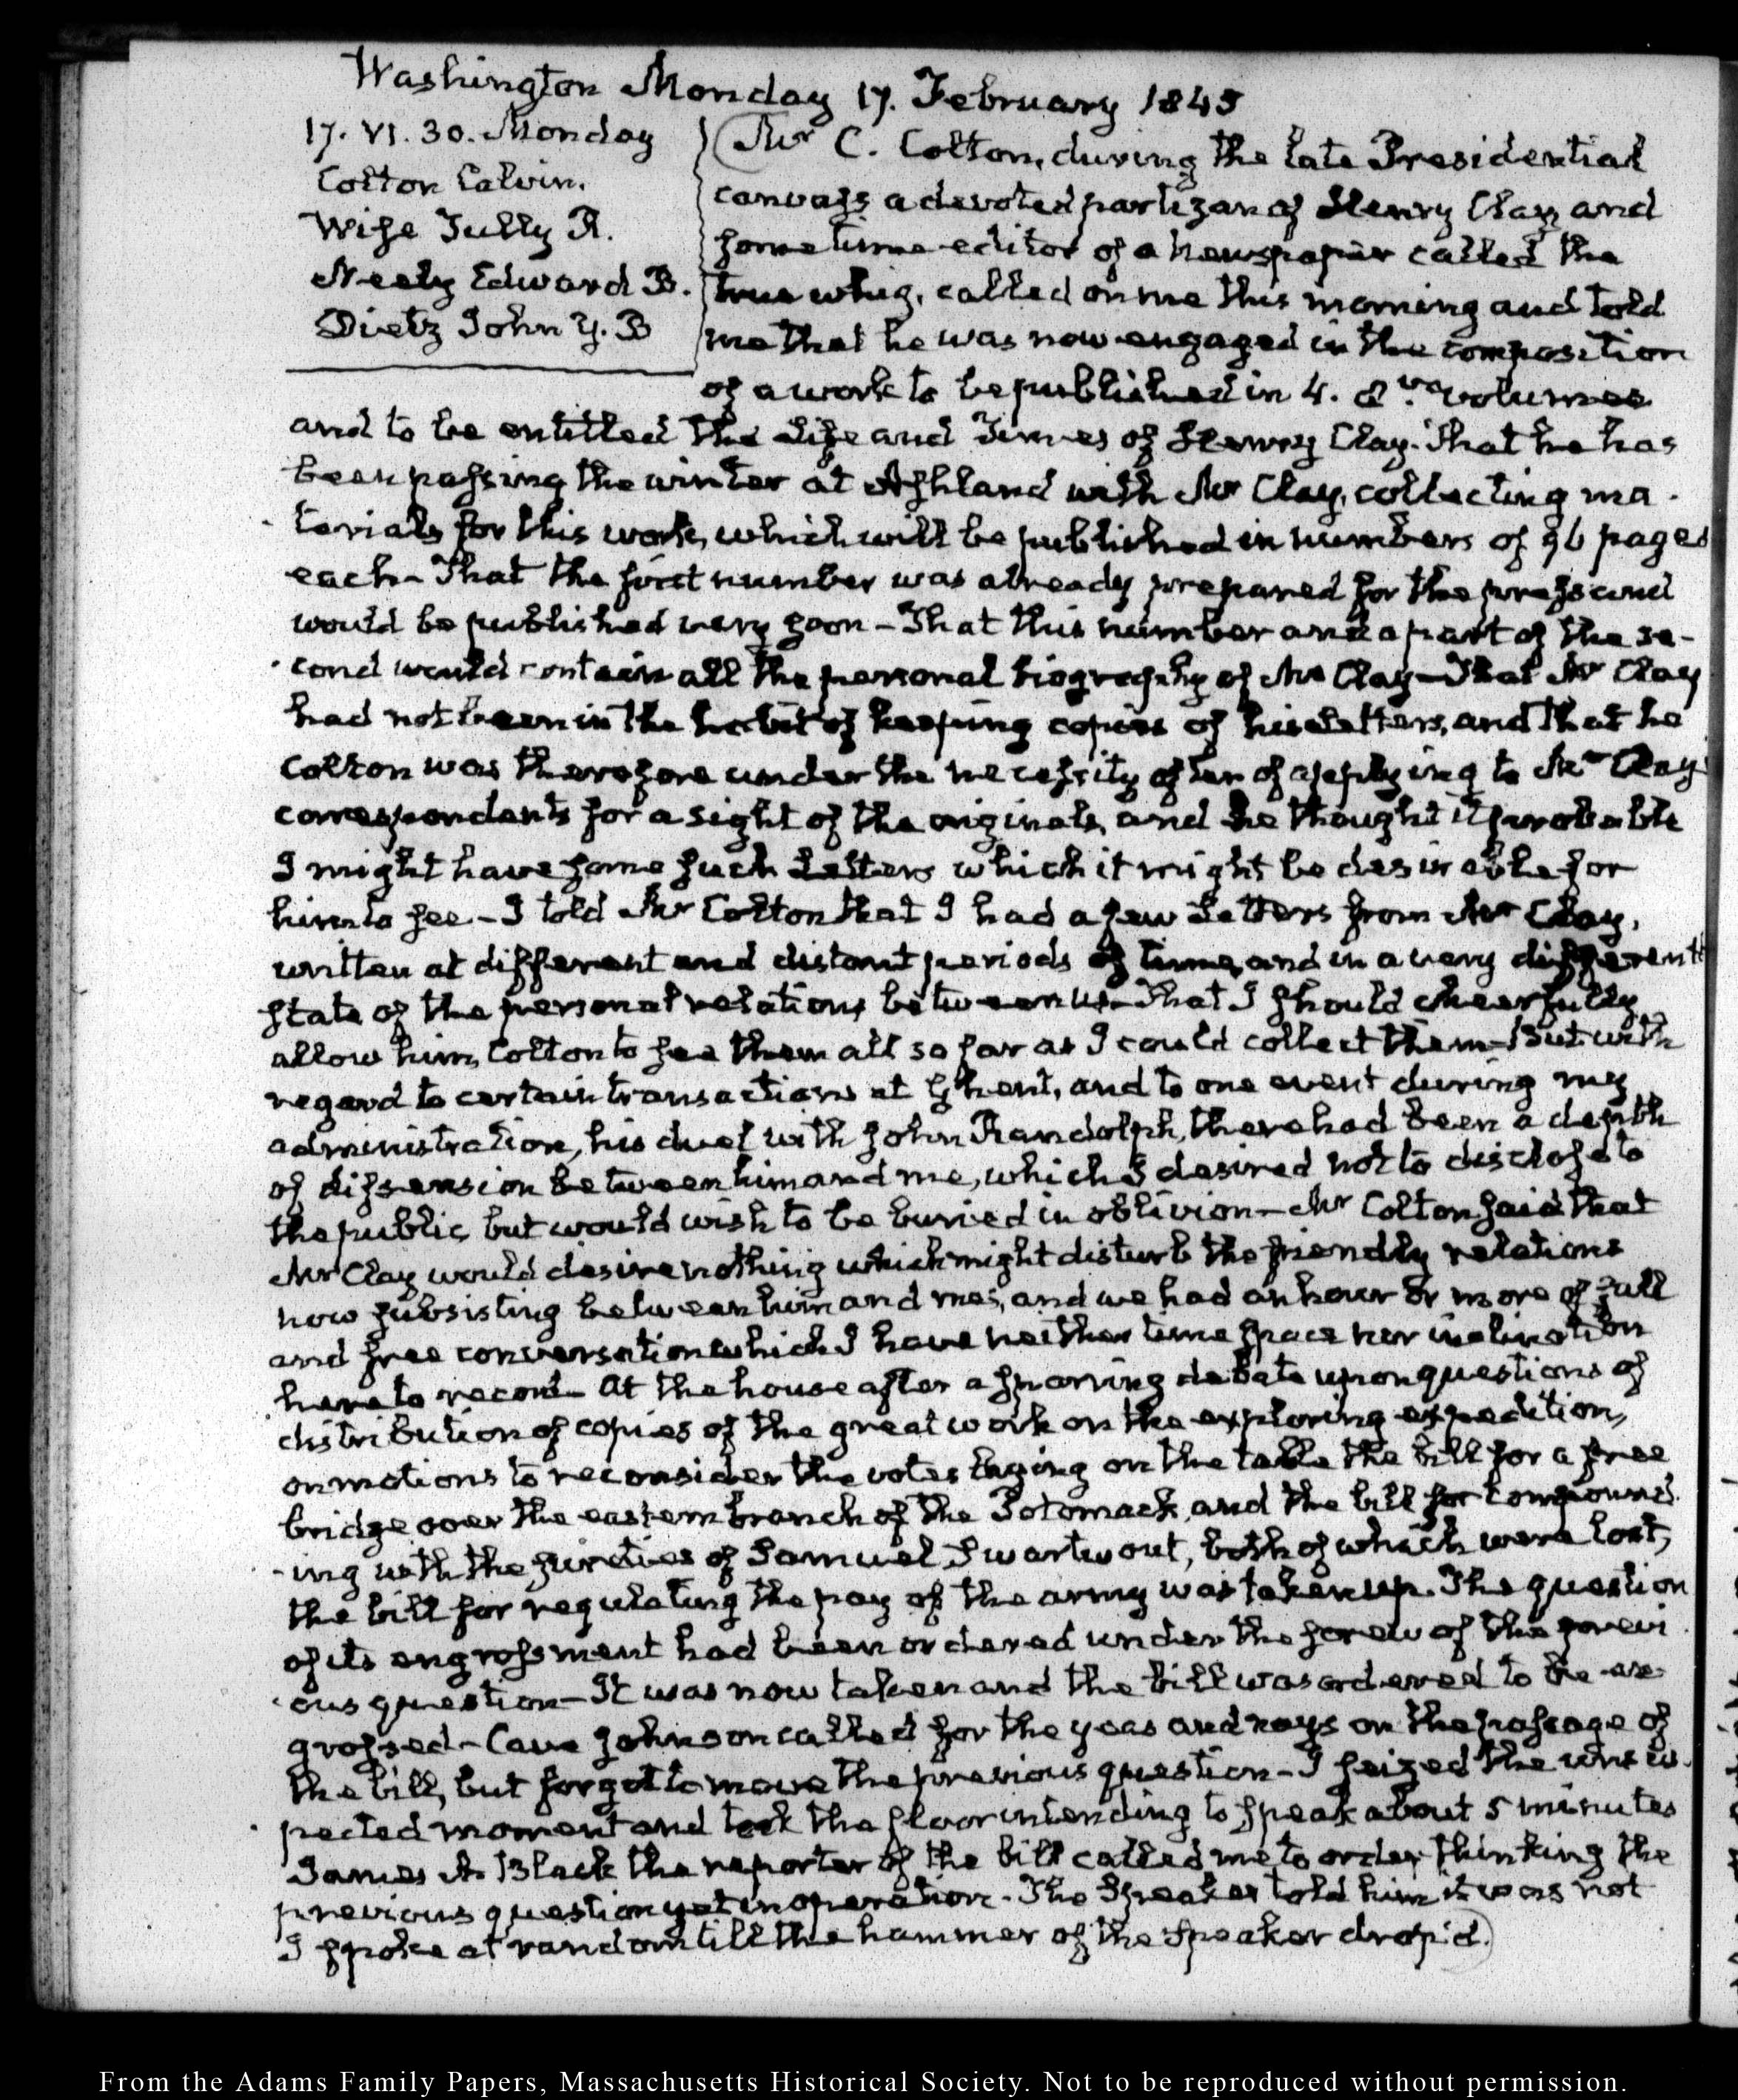 Washington Monday 17. February 1845
17. VI. 30. Monday
Colton Calvin.
Wise Tully R.
Neely Edward B.
Dietz John Y. B
Mr C. Colton, during the late Presidential
canvass a devoted partizan of Henry Clay, and
some time editor of a newspaper called the
true whig, called on me this morning and told
me that he was now engaged in the composition
of a work to be published in 4. 8vo. volumes
and to be entitled The Life and Times of Henry Clay. That he has
been passing the winter at Ashland with Mr Clay, collecting ma-
terials for this work, which will be published in numbers of 96 pages
each—That the first number was already prepared for the press and
would be published very soon—That this number and a part of the se-
cond would contain all the personal biography of Mr Clay—That Mr Clay
had not been in the habit of keeping copies of his Letters, and that he
Colton was therefore under the necessity often of applying to Mr Clay's
correspondents for a sight of the originals, and he thought it probable
I might have some such Letters which it might be desirable for
him to see—I told Mr Colton that I had a few Letters from Mr Clay,
written at different and distant periods of time, and in a very different
state of the personal relations between us—That I should cheerfully
allow him, Colton to see them all so far as I could collect them—But with
regard to certain transactions at Ghent, and to one event during my
administration, his duel with John Randolph, there had been a depth
of dissension between him and me, which I desired not to disclose to
the public, but would wish to be buried in oblivion—Mr Colton said that
Mr Clay would desire nothing which might disturb the friendly relations
now subsisting between him and me, and we had an hour or more of full
and free conversation which I have neither time space nor inclination
here to record—At the house after a sparring debate upon questions of
distribution of copies of the great work on the exploring expedition,
on motions to reconsider the votes laying on the table the bill for a free
bridge over the eastern branch of the Potomack, and the bill for compound-
ing with the sureties of Samuel Swartwout, both of which were lost,
the bill for regulating the pay of the army was taken up. The question
of its engrossment had been ordered under the screw of the previ-
ous question—It was now taken and the bill was ordered to be en-
grossed—Cave Johnson called for the yeas and nays on the passage of
the bill, but forgot to move the previous question—I seized the unex-
pected moment and took the floor intending to speak about 5 minutes
James A. Black the reporter of the bill called me to order thinking the
previous question yet in operation. The Speaker told him it was not
I spoke at random till the hammer of the Speaker drop'd.
From the Adams Family Papers, Massachusetts Historical Society. Not to be reproduced without permission.